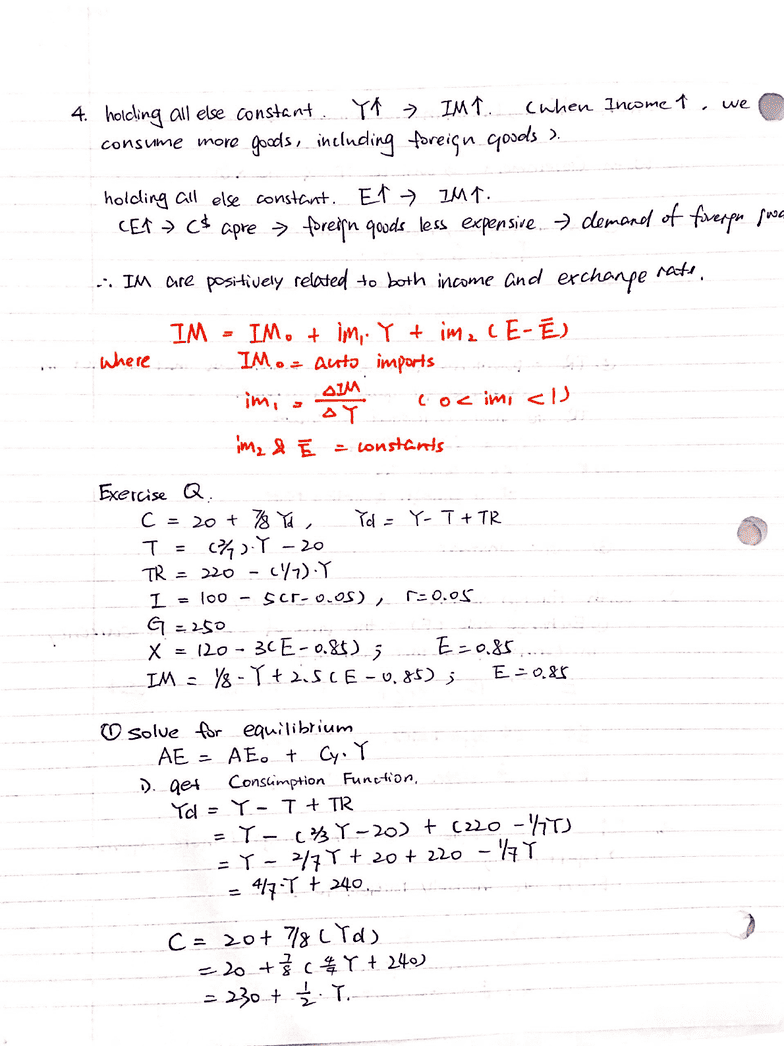 4. holding all else constant. Y↑ → IM↑. (when Income ↑, we
consume more goods, including foreign goods).
holding all else constant. E↑ → IM↑.
(E↑ → C$ apre → foreign goods less expensive. → demand of foreign
∴ IM are positively related to both income and exchange rate.
IM = IM₀ + im₁·Y + im₂ (E-Ē)
where IM₀ = auto imports
im₁ = ΔIM/ΔY (0 < im₁ < 1)
im₂ & Ē = constants
Exercise Q.
C = 20 + 7/8 Yd, Yd = Y - T + TR
T = (2/7)·Y - 20
TR = 220 - (1/7)·Y
I = 100 - 5(r-0.05), r=0.05
G = 250
X = 120 - 3(E-0.85); E = 0.85
IM = 1/8 - Y + 2.5(E-0.85); E = 0.85
① solve for equilibrium
AE = AE₀ + Cy·Y
1). get Consumption Function.
Yd = Y - T + TR
= Y - (2/3 Y - 20) + (220 - 1/7Y)
= Y - 2/7 Y + 20 + 220 - 1/7 Y
= 4/7·Y + 240
C = 20 + 7/8 (Yd)
= 20 + 7/8 (4/7 Y + 240)
= 230 + 1/2·Y.